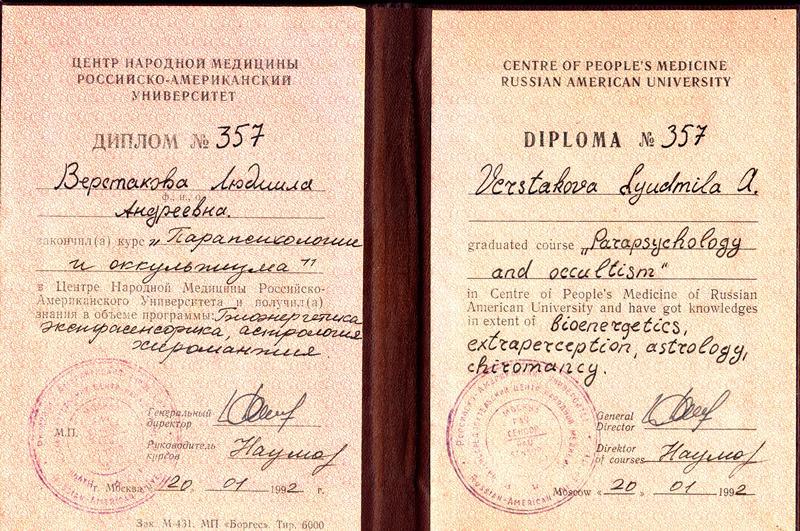 ЦЕНТР НАРОДНОЙ МЕДИЦИНЫ
РОССИЙСКО-АМЕРИКАНСКИЙ
УНИВЕРСИТЕТ
ДИПЛОМ № 357
Верстакова Людмила
ф., и., о.
Андреевна.
закончил(а) курс „Парапсихологии
и оккультизма"
в Центре Народной Медицины Российско-
Американского Университета и получил(а)
знания в объеме программы: Биоэнергетика
экстрасенсорика, астрология
хиромантия
М.П.
Генеральный
директор
Руководитель
курсов
Наумов
г. Москва „20„ 01 1992 г.
Зак. М-431. МП «Боргес». Тир. 6000
CENTRE OF PEOPLE'S MEDICINE
RUSSIAN AMERICAN UNIVERSITY
DIPLOMA № 357
Verstakova Lyudmila A.
graduated course „Parapsychology
and occultism“
in Centre of People's Medicine of Russian
American University and have got knowledges
in extent of Bioenergetics,
extraperception, astrology,
chiromancy.
General
Director
Direktor
of courses
Наумов
Moscow « 20 » 01 1992
RUSSIAN-AMERICAN